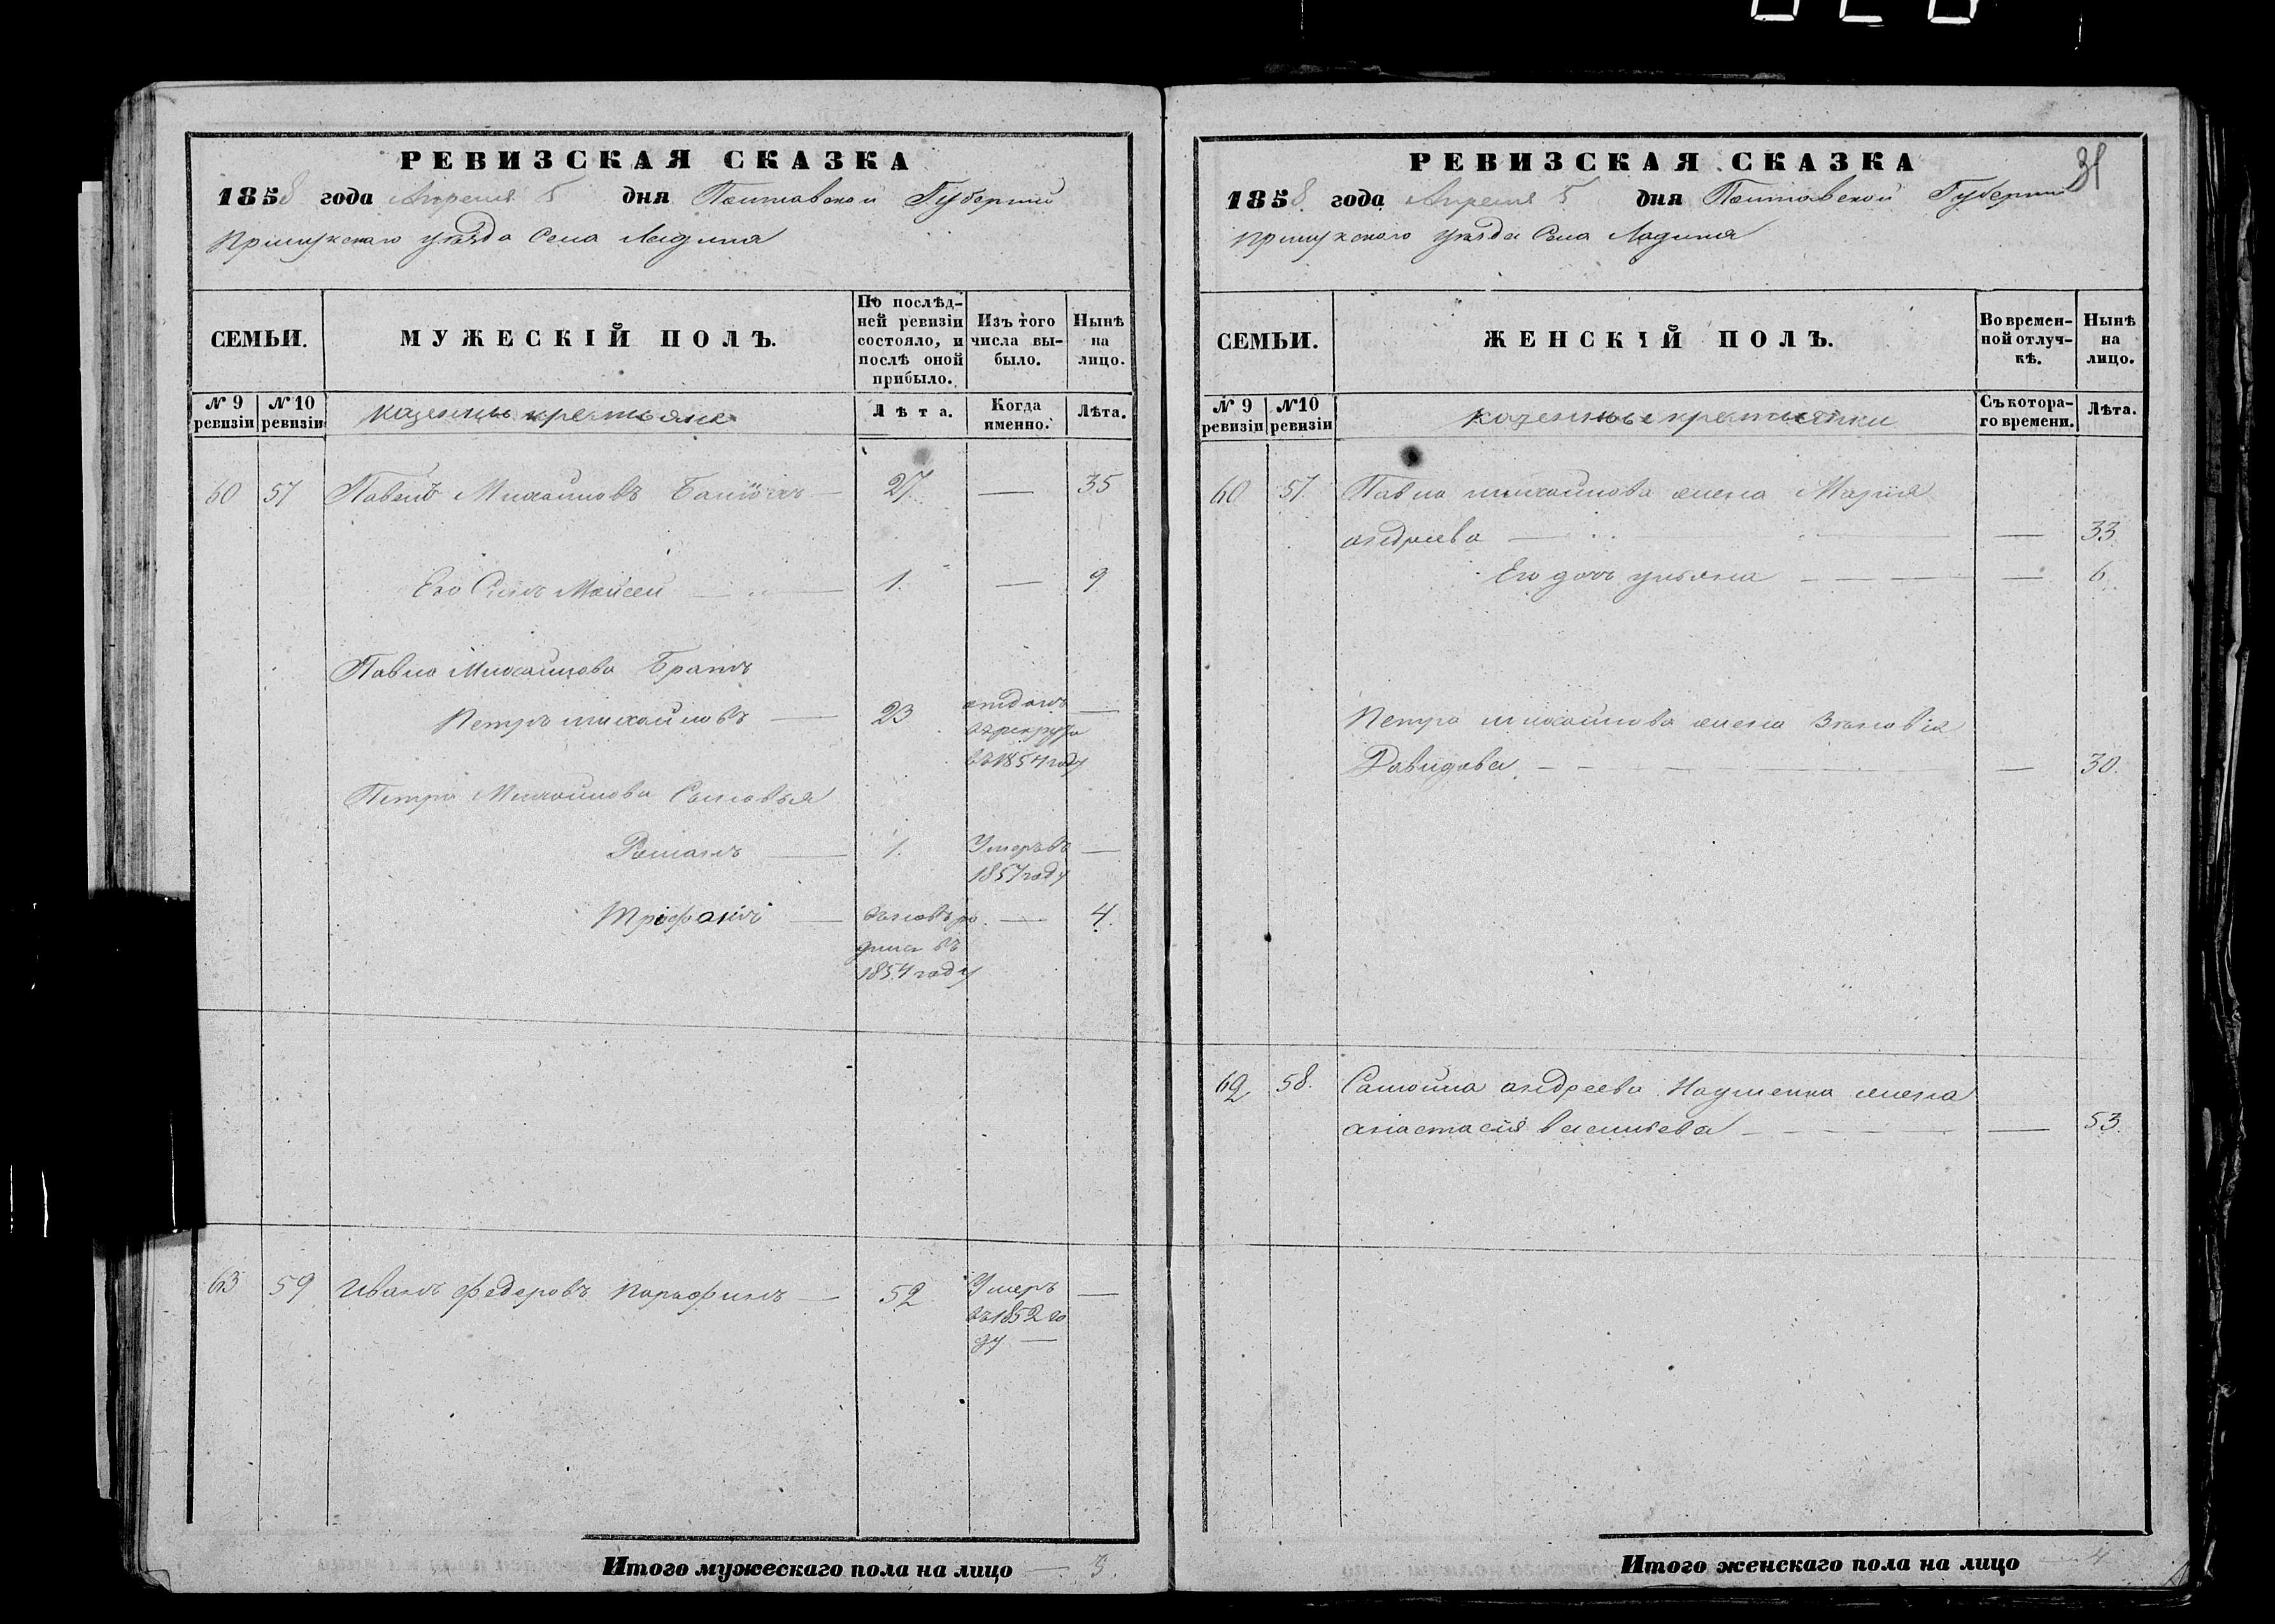 РЕВИЗСКАЯ СКАЗКА
1858 года Апреля 5 дня Полтавской Губернии
Прилукского уезда Села Ладина
СЕМЬИ.
МУЖЕСКІЙ ПОЛЪ.
По послѣд-
ней ревизіи
состояло, и
послѣ оной
прибыло.
Изъ того
числа вы-
было.
Нынѣ
на
лицо.
№ 9
ревизіи
№ 10
ревизіи
казенны крестьяне
Лѣта.
Когда
именно.
Лѣта.
60 57 Павелъ Михайловъ — 27 — 35
Его Сынъ Мойсей — 1. — 9
Павла Михайлова Братъ
Петръ михайловъ — 23 отданъ —
въ рекруты
въ 1854 году
Петра Михайлова Сыновья
Романъ — 1. Умеръ въ —
1857 году
Трифонъ — вновь ро — 4.
дился въ
1854 году
63 59 Иванъ Федоровъ Парафинъ — 52 Умеръ —
въ 1852 го
ду —
Итого мужескаго пола на лицо — 3.
31
РЕВИЗСКАЯ СКАЗКА
1858 года Апреля 5 дня Полтавской Губернии
Прилукского уезда Села Ладина
СЕМЬИ.
ЖЕНСКІЙ ПОЛЪ.
Во времен-
ной отлуч-
кѣ.
Нынѣ
на
лицо.
№ 9
ревизіи
№10
ревизіи
казенные крестьянки
Съ котора-
го времени.
Лѣта.
60 57. Павла михайлова жена Мария
андреева — — 33
Его дочь ульяна — — 6
Петра михайлова жена Зѣновія
Давидова — — 30.
62 58. Самойла андреева Науменка жена
анастасія васильева — — 53.
Итого женскаго пола на лицо — 4